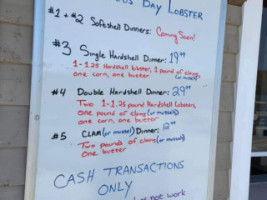 Day Lobster
#1 + #2 Softshell Dinners: Coming Soon!
#3 Single Hardshell Dinner: 19.99
1-1.25 Hardshell lobster, 1 pound of clams (or mussels)
one corn, one butter
#4 Double Hardshell Dinner: 29.99
Two 1-1.25 pound Hardshell Lobsters,
one pound of clams (or mussels)
one corn, one butter
#5 CLAM (or mussel) Dinner: 12.99
Two pounds of clams (or mussels)
one butter
CASH TRANSACTIONS
ONLY
not work